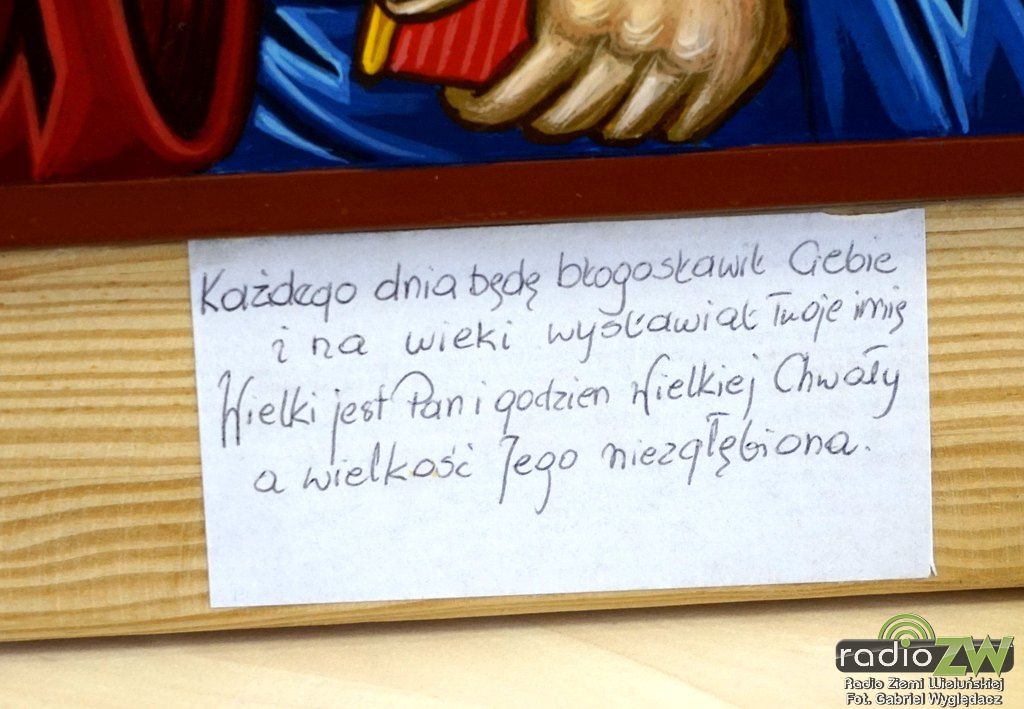 Każdego dnia będę błogosławił Ciebie
i na wieki wysławiał Twoje imię
Wielki jest Pan i godzien Wielkiej Chwały
a wielkość Jego niezgłębiona.
radio ZW
Radio Ziemi Wieluńskiej
Fot. Gabriel Wyględacz